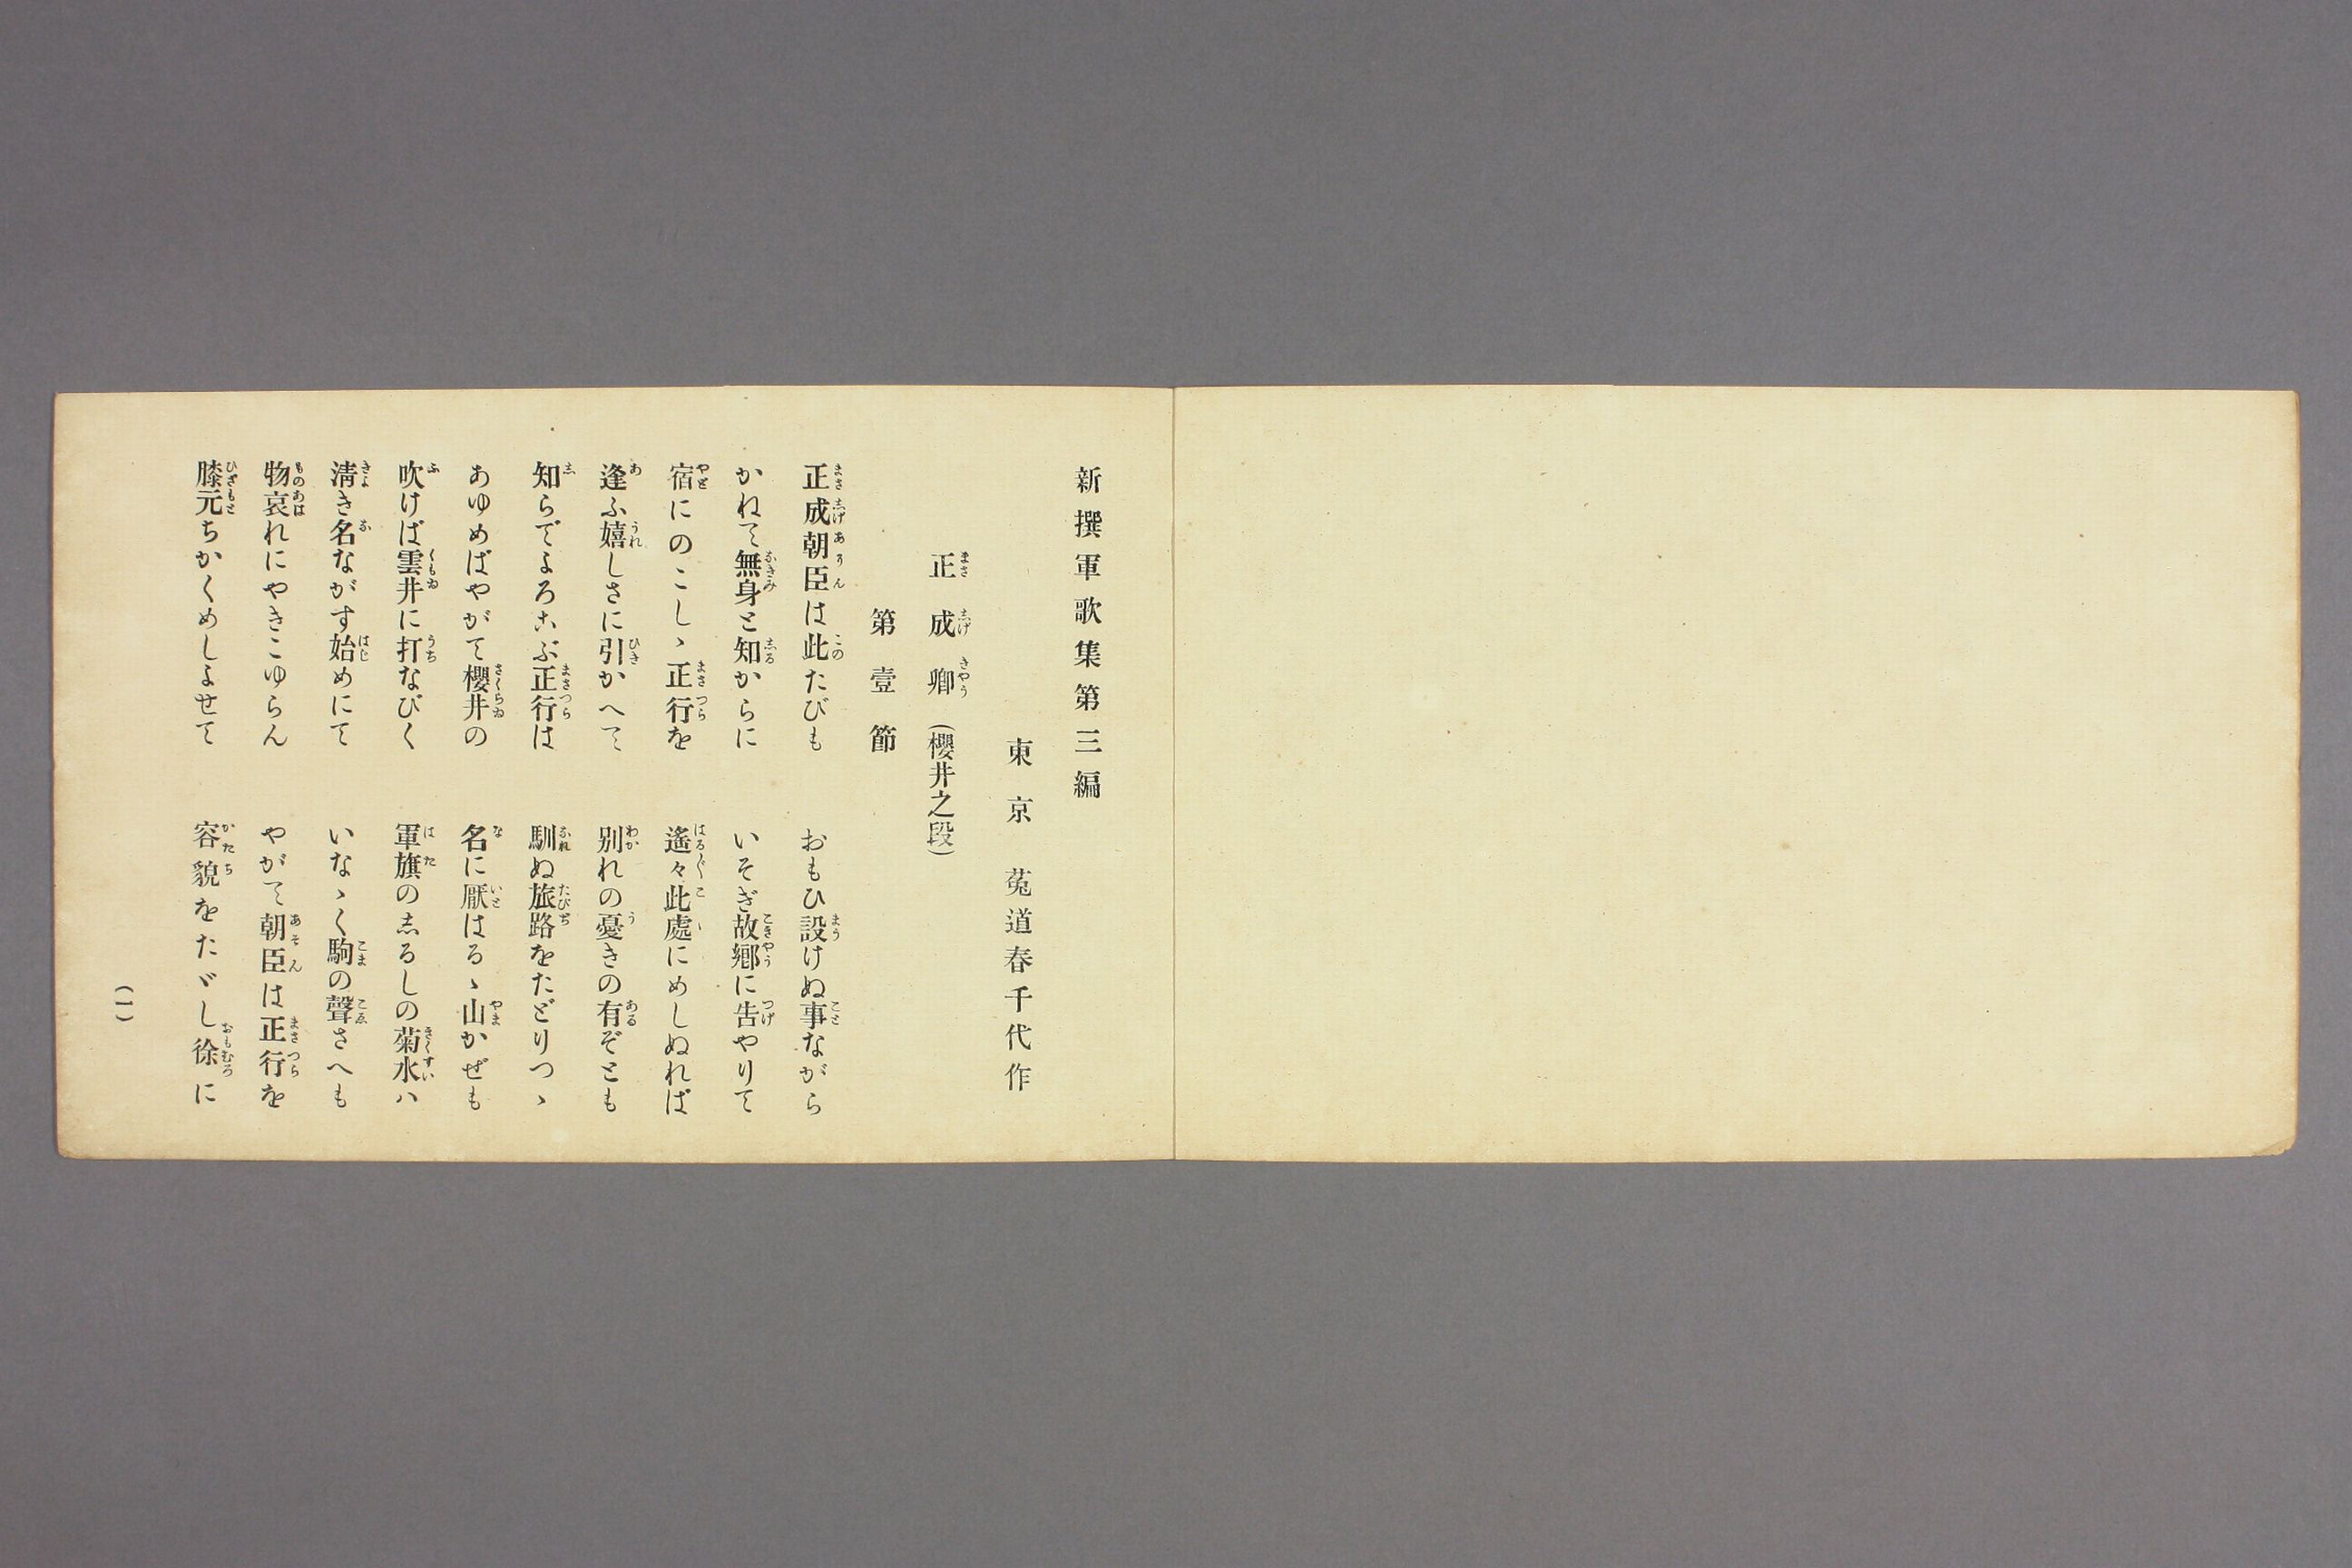 新撰軍歌集第三編
東京 菟道春千代作
正成卿（櫻井之段）
第壹節
正成朝臣は此たびも おもひ設けぬ事ながら
かねて無身と知からに いそぎ故鄕に告やりて
宿にのこしゝ正行を 遙々此處にめしぬれば
逢ふ嬉しさに引かへて 別れの憂きの有ぞとも
知らでよろこぶ正行は 馴ぬ旅路をたどりつゝ
あゆめばやがて櫻井の 名に厭はるゝ山かぜも
吹けば雲井に打なびく 軍旗のゑるしの菊水ハ
淸き名ながす始めにて いなゝく駒の聲さへも
物哀れにやきこゆらん やがて朝臣は正行を
膝元ちかくめしよせて 容貌をたゞし徐に
（一）